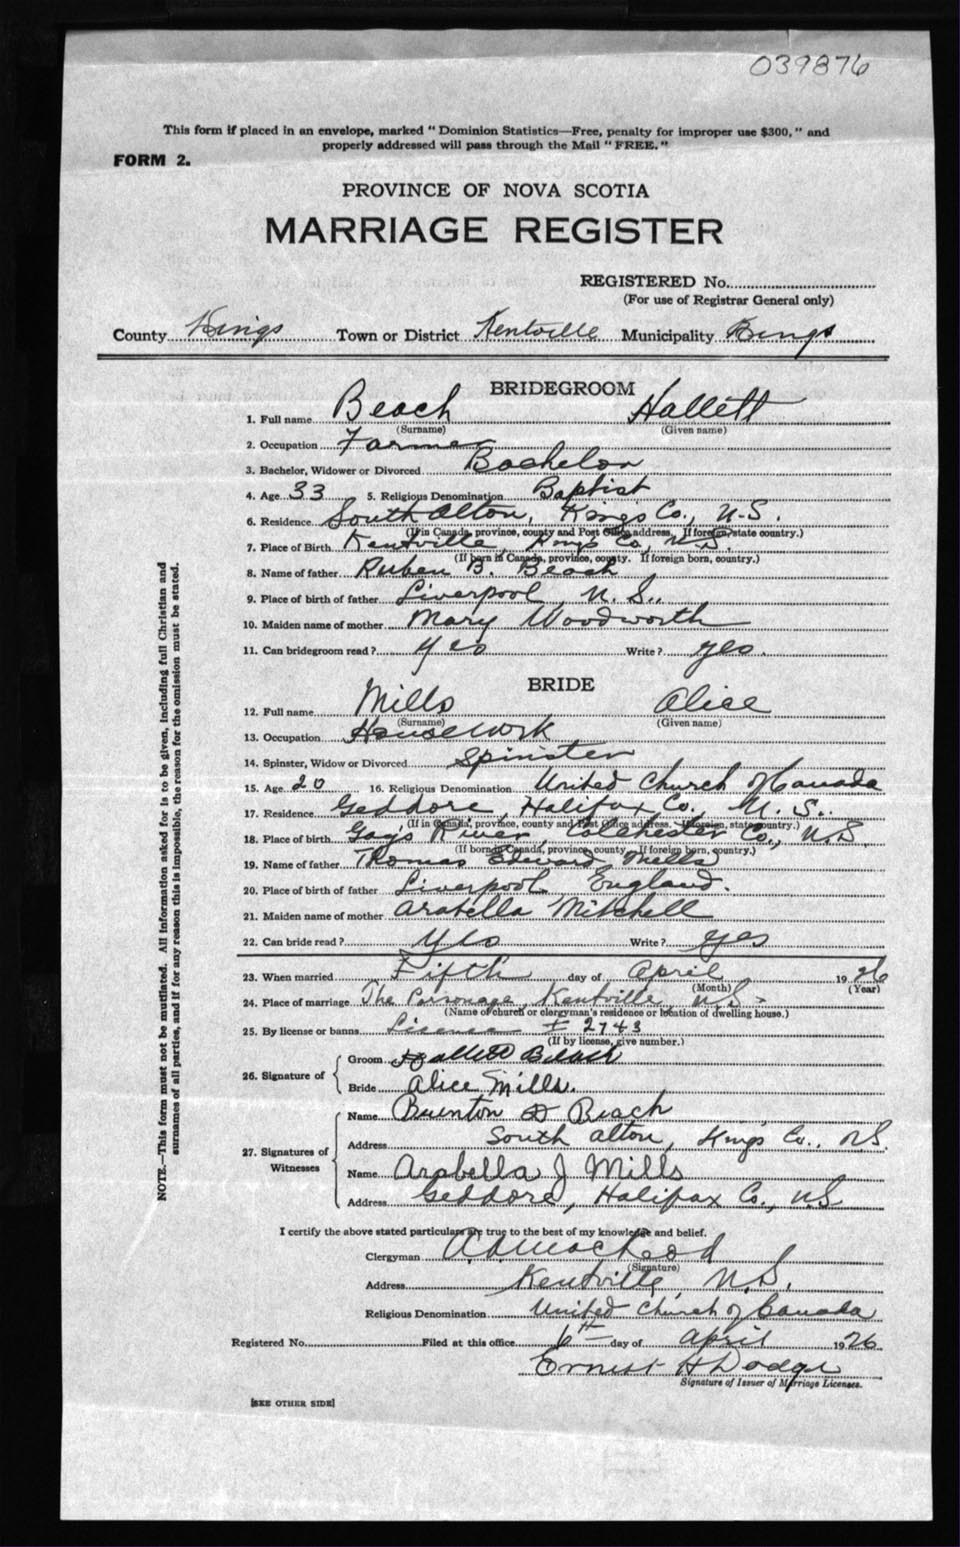 039876
This form if placed in an envelope, marked "Dominion Statistics—Free, penalty for improper use $300," and
properly addressed will pass through the Mail "FREE."
FORM 2.
PROVINCE OF NOVA SCOTIA
MARRIAGE REGISTER
REGISTERED No.
(For use of Registrar General only)
County Kings Town or District Kentville Municipality Kings
BRIDEGROOM
1. Full name Beach Hallett
(Surname) (Given name)
2. Occupation Farmer
3. Bachelor, Widower or Divorced Bachelor
4. Age 33 5. Religious Denomination Baptist
6. Residence South Alton, King's Co., N.S.
(If in Canada, province, county and Post Office address. If foreign, state country.)
7. Place of Birth Kentville, Kings Co, N.S.
(If born in Canada, province, county. If foreign born, country.)
8. Name of father Ruben B. Beach
9. Place of birth of father Liverpool, N.S.
10. Maiden name of mother Mary Woodworth
11. Can bridegroom read? yes Write? yes.
BRIDE
12. Full name Mills Alice
(Surname) (Given name)
13. Occupation Housework
14. Spinster, Widow or Divorced Spinster
15. Age 20 16. Religious Denomination United Church of Canada
17. Residence Geddore, Halifax Co., N.S.
(If in Canada, province, county and Post Office address. If foreign, state country.)
18. Place of birth Gay's River, Colchester Co., N.S.
(If born in Canada, province, county. If foreign born, country.)
19. Name of father Thomas Edward Mills
20. Place of birth of father Liverpool, England.
21. Maiden name of mother Arabella Mitchell
22. Can bride read? yes Write? yes
23. When married Fifth day of April 1926
(Month) (Year)
24. Place of marriage The Parsonage, Kentville, N.S.
(Name of church or clergyman's residence or location of dwelling house.)
25. By license or banns License # 2743
(If by license, give number.)
26. Signature of
Groom Hallett Beach
Bride Alice Mills.
27. Signatures of Witnesses
Name Burnton D Beach
Address South Alton, King's Co., N.S.
Name Arabella J Mills
Address Geddore, Halifax Co., N.S
I certify the above stated particulars are true to the best of my knowledge and belief.
Clergyman A.D. MacLeod
(Signature)
Address Kentville N.S.
Religious Denomination United Church of Canada
Registered No. Filed at this office 6th day of April 1926
Ernest H Dodge
Signature of Issuer of Marriage Licenses.
[SEE OTHER SIDE]
NOTE.—This form must not be mutilated. All information asked for is to be given, including full Christian and
surnames of all parties, and if for any reason this is impossible, the reason for the omission must be stated.